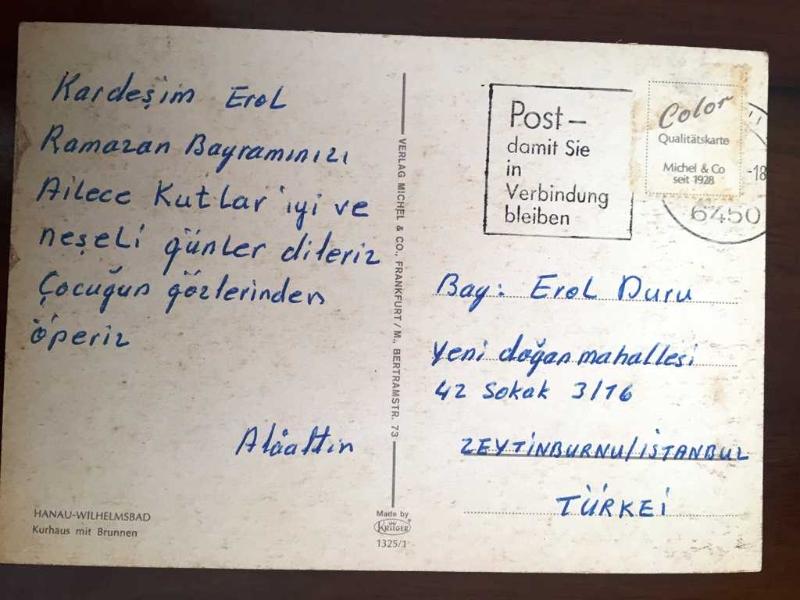 Kardeşim Erol
Ramazan Bayramınızı
Ailece Kutlar iyi ve
neşeli günler dileriz
Çocuğun gözlerinden
öperiz
Alâattin
HANAU-WILHELMSBAD
Kurhaus mit Brunnen
VERLAG MICHEL & CO., FRANKFURT/M., BERTRAMSTR. 73
Made by
KRÜGER
1325/1
Post –
damit Sie
in
Verbindung
bleiben
Color
Qualitätskarte
Michel & Co
seit 1928
-18
6450
Bay: Erol Duru
Yeni doğan mahallesi
42 Sokak 3/16
ZEYTİNBURNU/İSTANBUL
TÜRKEİ